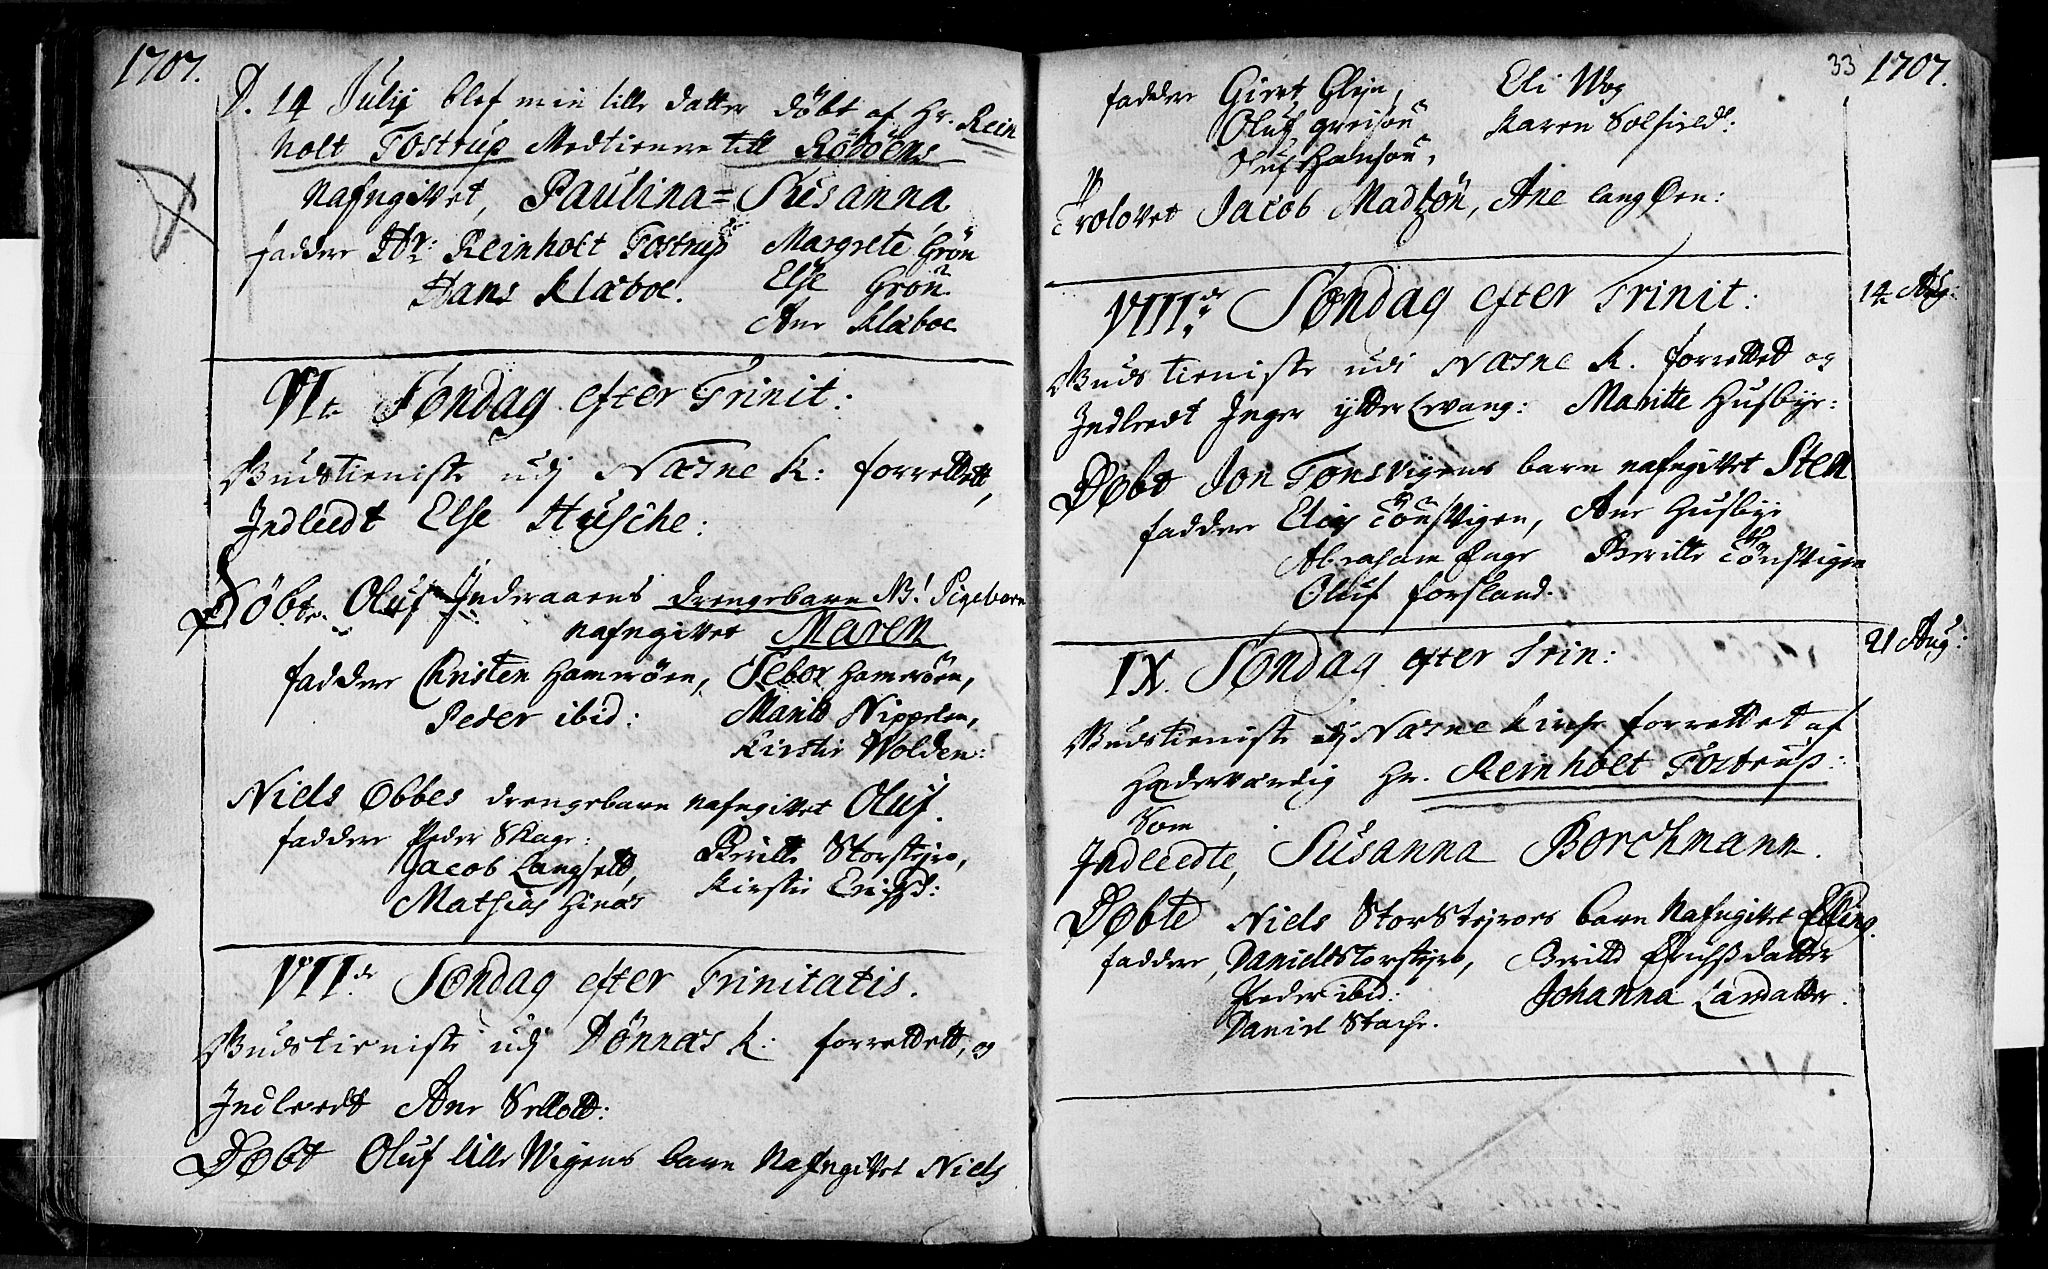 1707.
D. 14 Julij blef min lille datter døbt af Hr. Rein
holt Tostrup Medtienere till Rödöens
Nafngivet, Paulina = Susanna
faddere Hr: Reinholt Tostrup Margrete Grön
Hans Klæboe. Else Grön
Ane Klæboe
VIte Søndag efter Trinit:
Gudstieniste udj Næsne K: forrettett,
Indleedt Else Husche:
Döbt. Oluf Inderaaens drengebarn NB! Pigebarn
nafngivet Maren
faddere Christen Hamnöen, Sebor Hamnöen,
Peder ibid: Marit Nippelen,
Kirstie Wolden:
Niels Ebbes drengebarn nafngivet Oluf.
faddere Peder Skage: Beritte Storstejro,
Jacob Langsett, Kirstie Erichsd:
Mathias Hinas
VII.de Søndag efter Trinitatis.
Gudstieniste udj Dönnæs K: forrettett, og
Indleedt Ane Sellott:
Döbt Oluf lille Wigens barn Nafngivet Niels
33 1707.
faddere Giert Gleje, Eli Wog
Oluf Greisön Karen Solfield:
Oluf Hansön,
Trolovet Jacob Madzön, Ane lang Øen:
VIII.de Søndag efter Trinit: 14 Aug:
Gudstieniste udi Næsne K. forrettet og
Indleedt Inger ytter Qvang: Maritte Husbye:
Døbt Jon Tonsvigens barn nafngivet Sten
faddere Elias Tönsvigen, Ane Husbye
Abraham Enge Beritte Tönsvigen
Oluf forsland.
IX. Søndag efter Trin: 21 Aug:
Gudstieniste udj Næsne Kirche forrettet af
Hæderværdig Hr. Reinholt Tostrup:
Som
Indleedte, Susanna Borchmann.
Døbte Niels Storstejroes barn Nafngivet Elling.
faddere, Daniel Storstejro, Beritte Erichsdatter
Peder ibid: Johanna Larsdatter.
Daniel Stache.